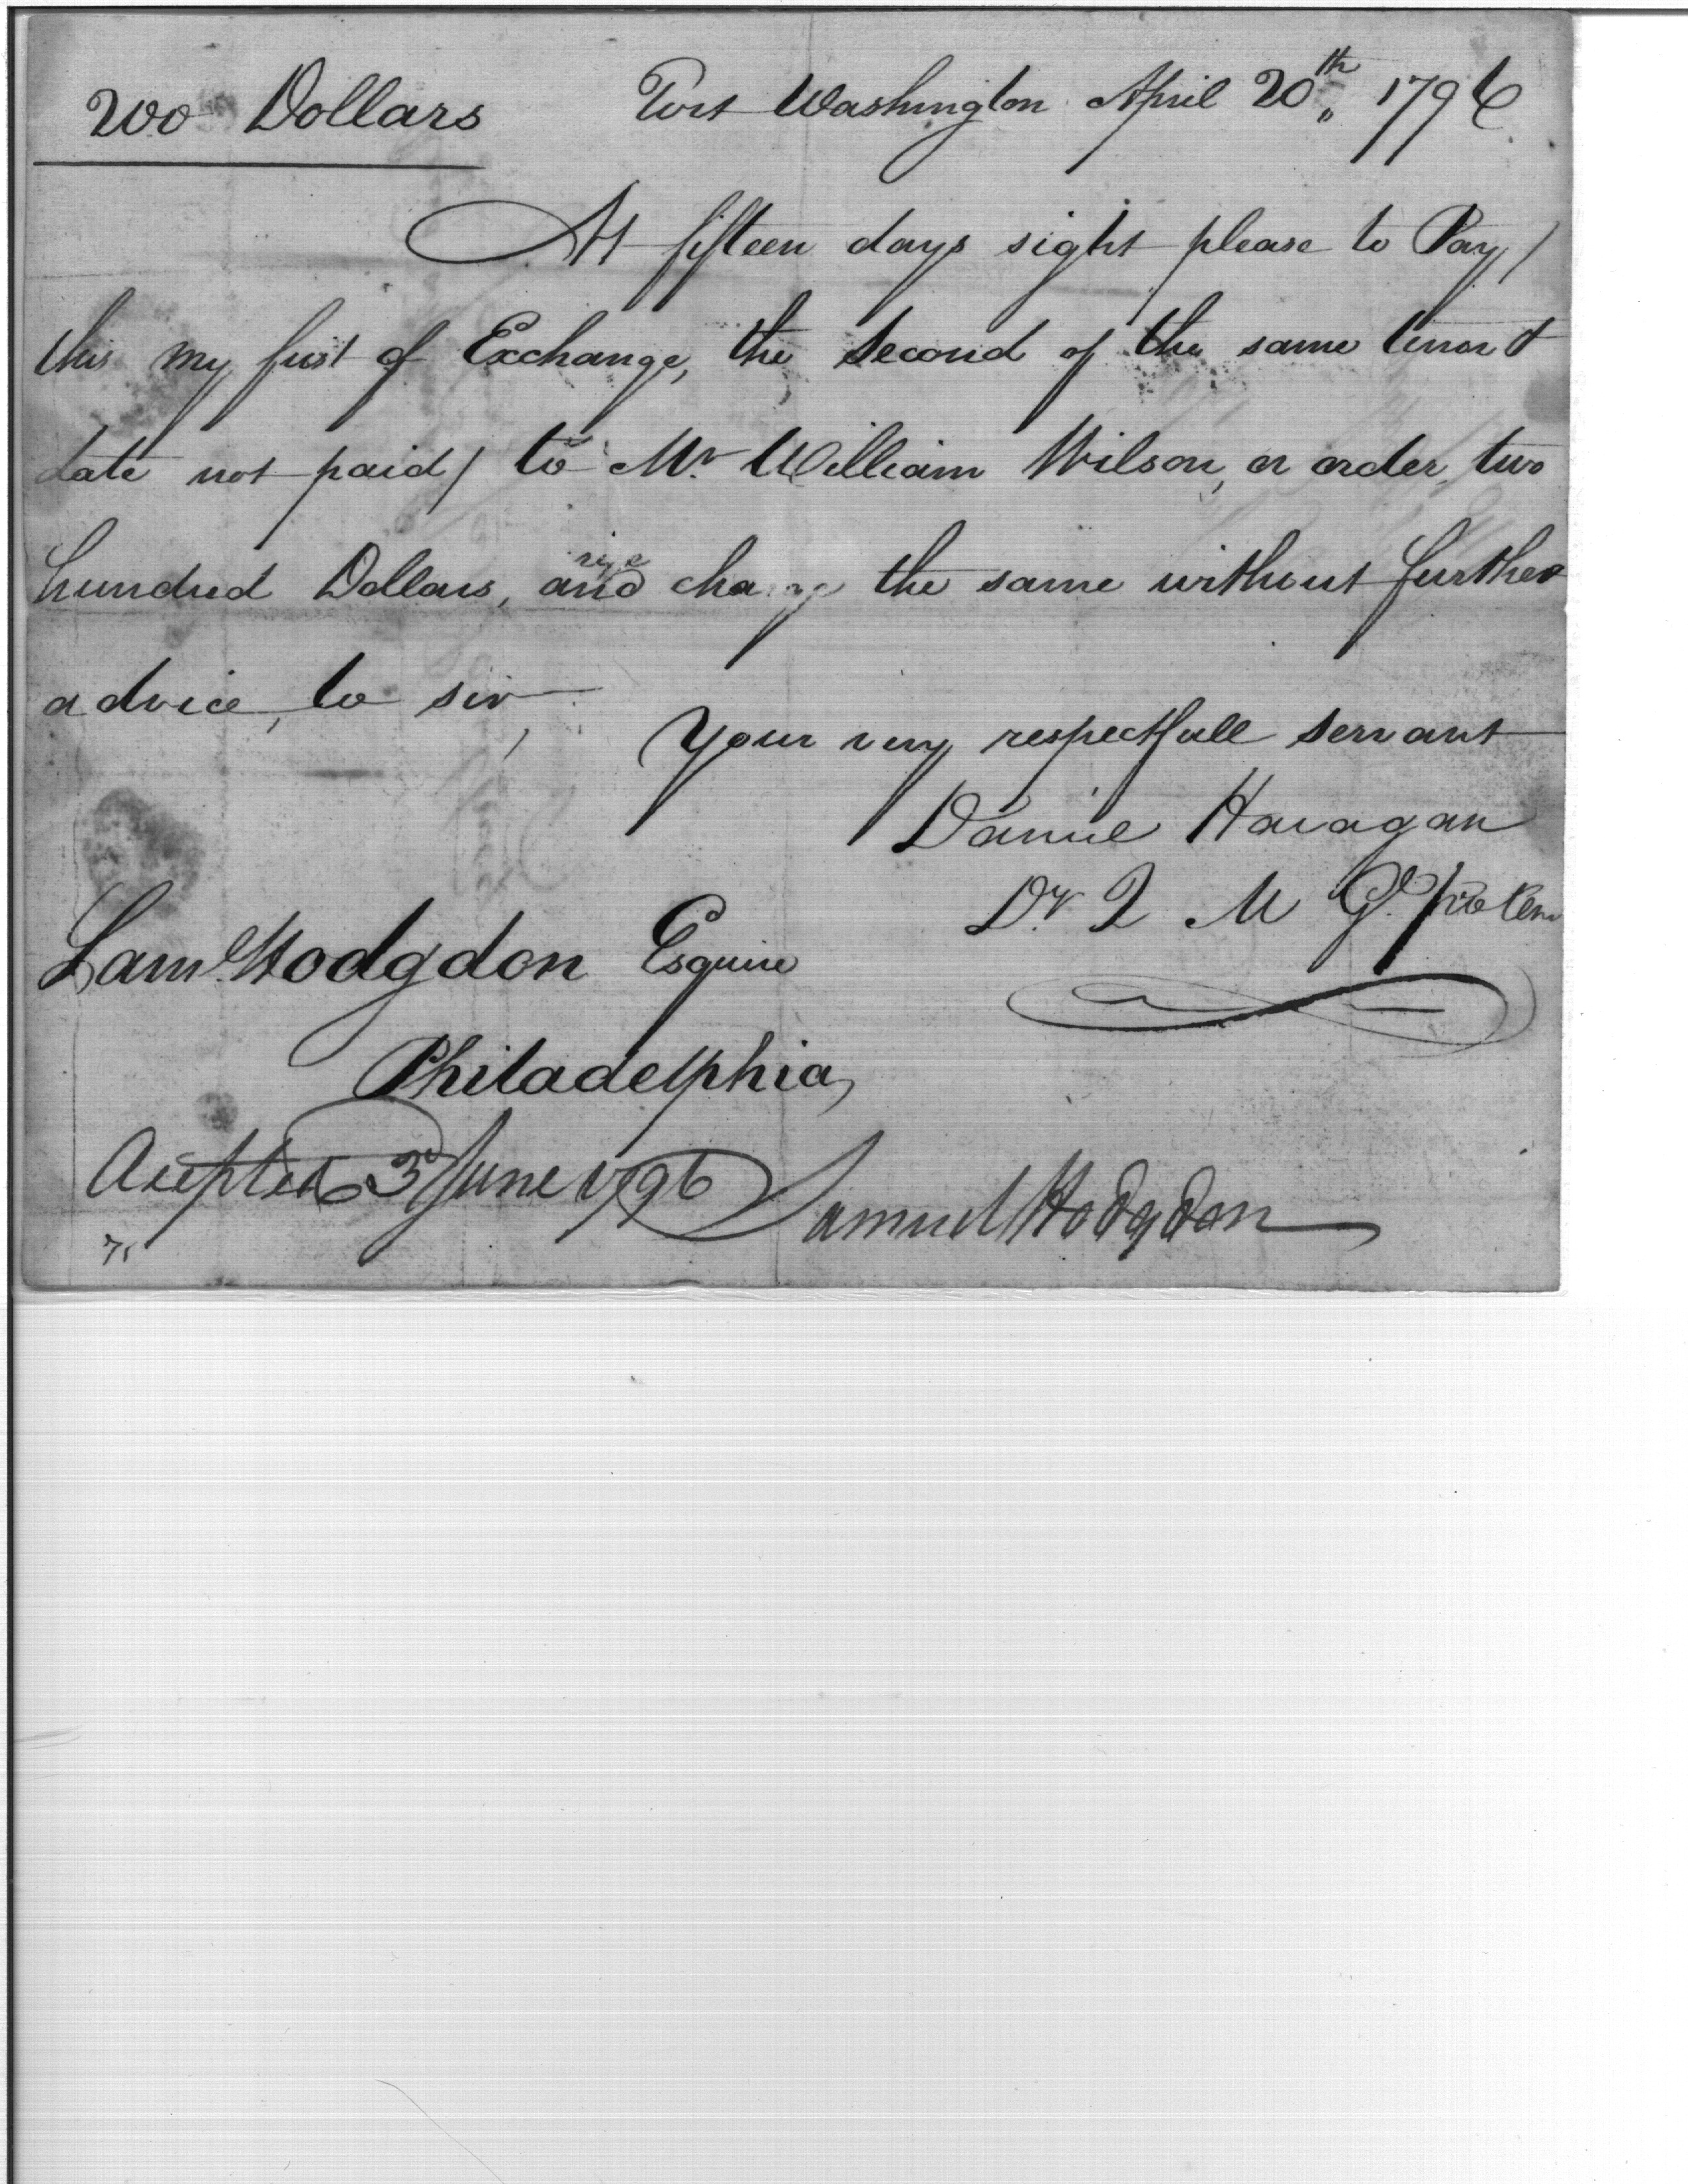 200 Dollars Fort Washington April 20th 1796
At fifteen days sight please to Pay /
this my first of Exchange, the second of the same tenor &
date not paid / to Mr. William Wilson, or order, two
hundred Dollars, and charge the same without further
advice, to sir,
Your very respectfull servant
Daniel Haragan
Dr Q M G.
Saml. Hodgdon Esquire
Philadelphia,
Accepted 3d June 1796 Samuel Hodgdon